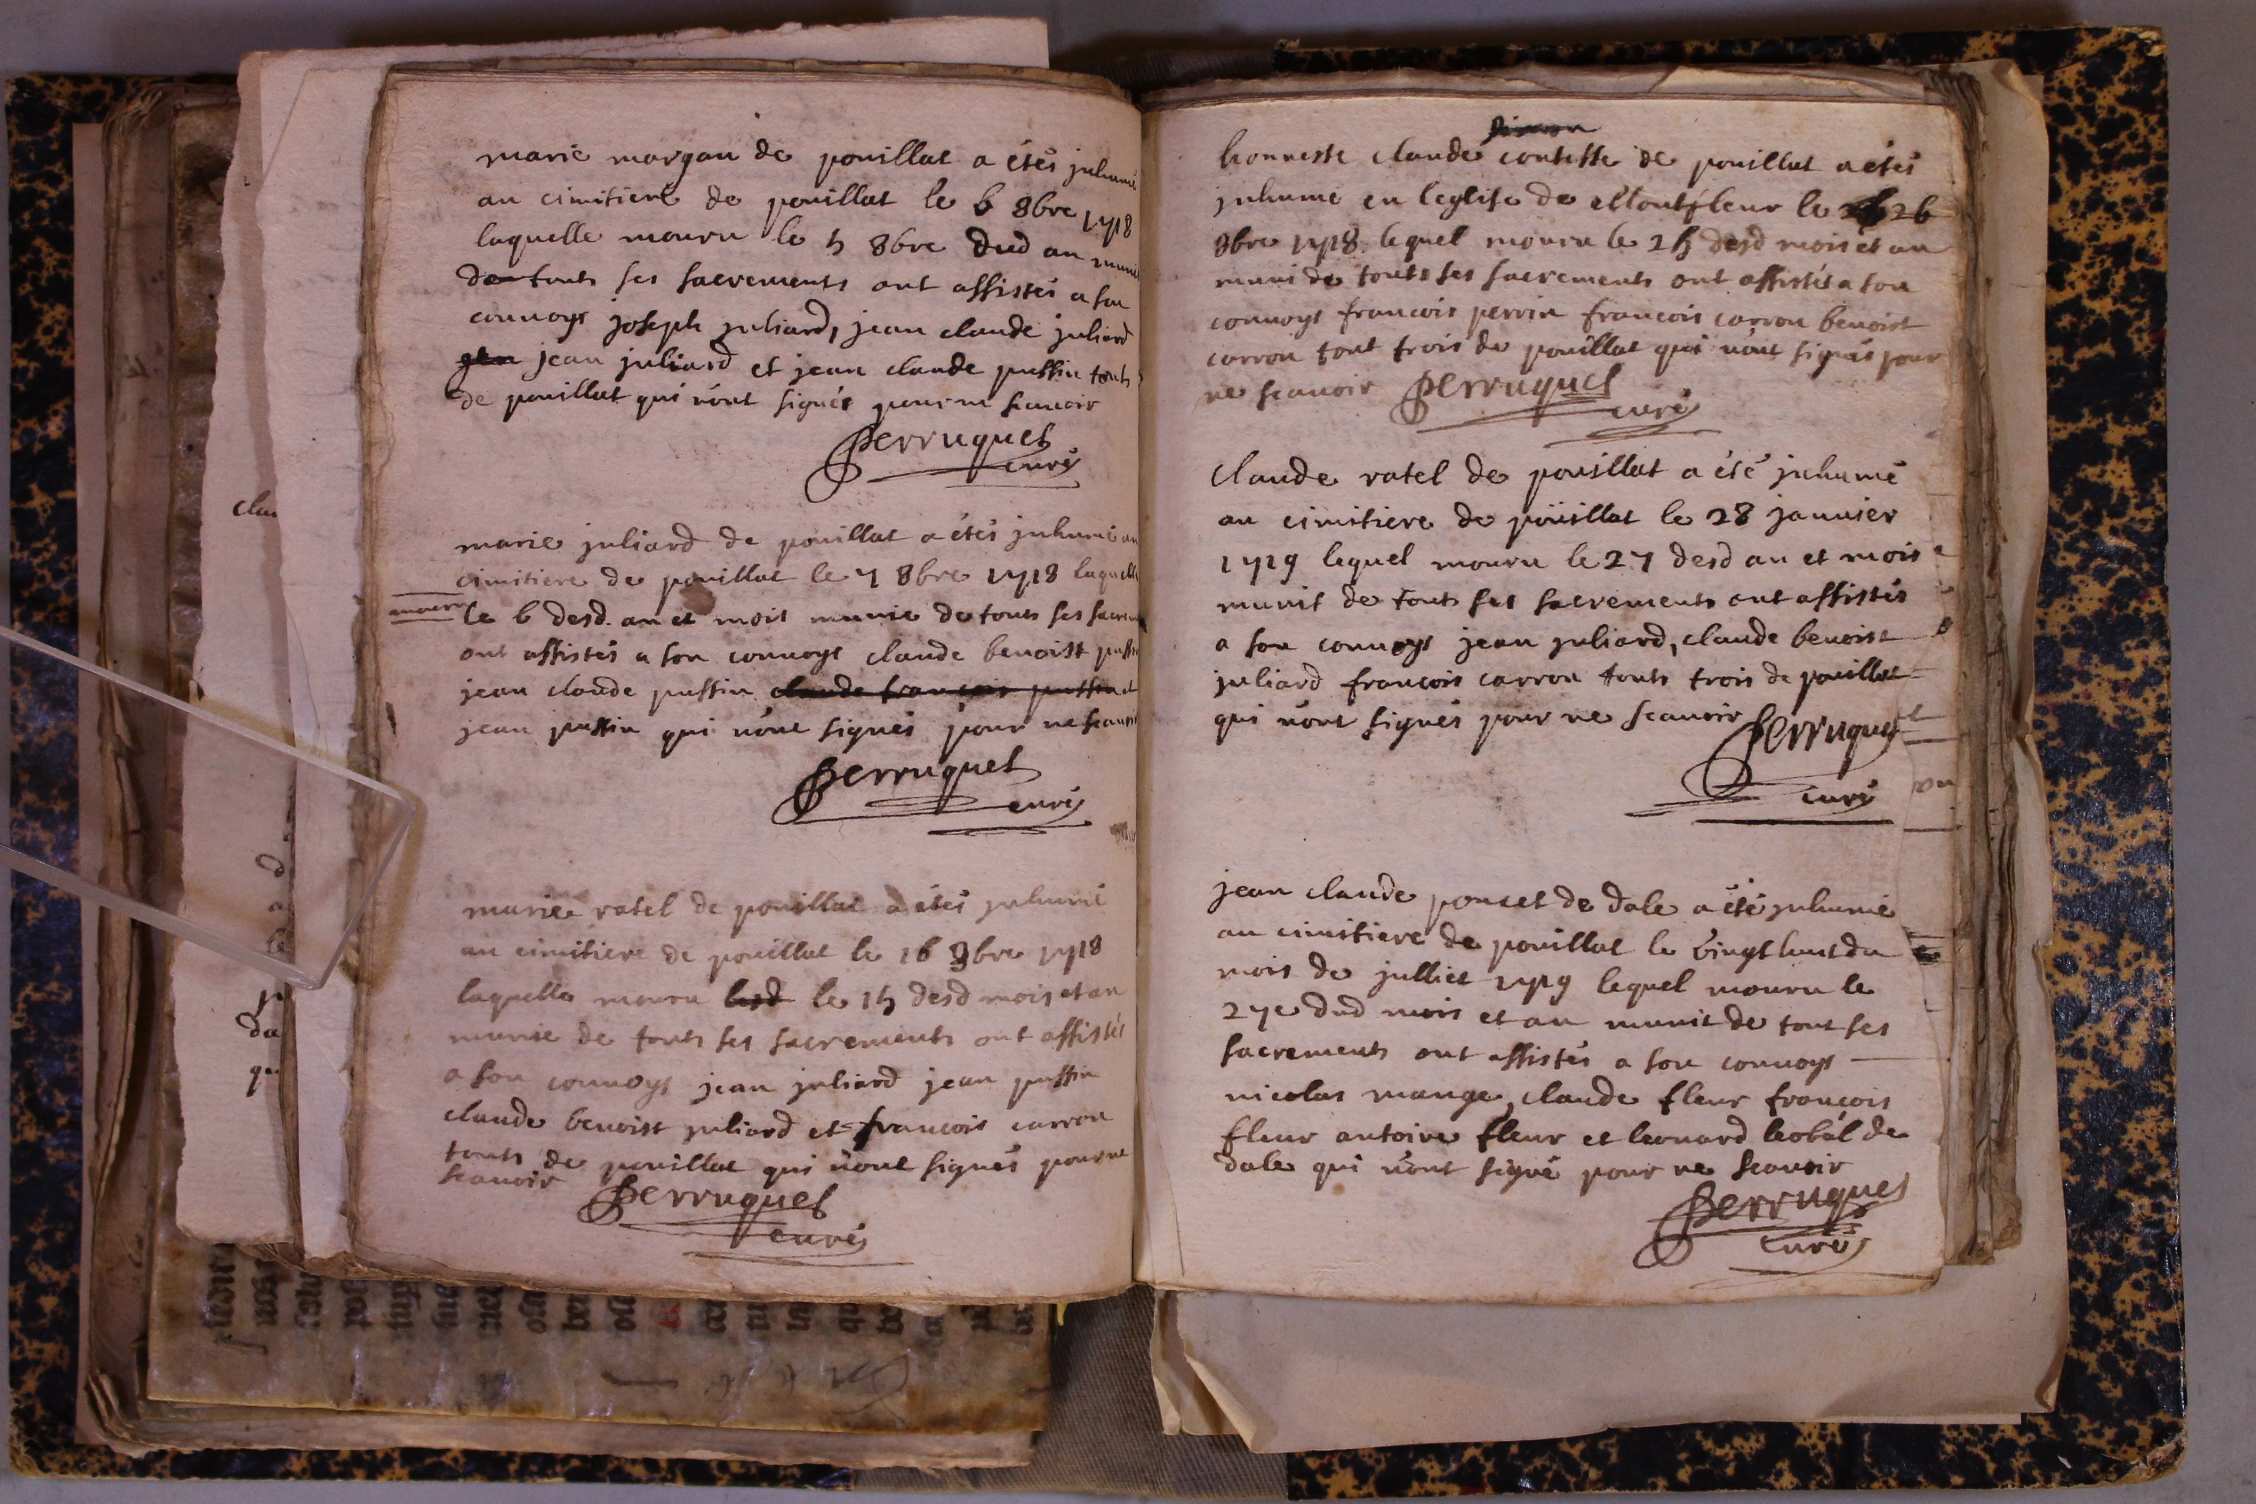 marie morgan de pouillat a étés jnhumé
au cimitiere de pouillat le 6 8bre 1718
laquelle mouru le 5 8bre dud an munie
de touts ses sacrements ont assistés a son
convoys joseph juliard, jean claude juliard
jean juliard et jean claude pussin touts
de pouillat qui n'ont signés pour ne scauoir
Perruquet
curé
marie juliard de pouillat a étés jnhumé au
cimitiere de pouillat le 7 8bre 1718 laquelle
mouru le 6 desd. an et mois munie de touts ses sacrem
ont assistés a son convoys claude benoist pussin
jean claude pussin claude françois pussin et
jean pussin qui n'ont signés pour ne scauoir
Perruquet
curé
marie ratel de pouillat a étés jnhumé
au cimitiere de pouillat le 16 9bre 1718
laquelle mouru lesd le 15 desd mois et an
munie de touts ses sacrements ont assistés
a son convoys jean juliard jean pussin
claude benoist juliard et francois carron
touts de pouillat qui n'ont signés pour ne
scauoir Perruquet
curé
honneste claude contesse de pouillat a étés
jnhumé en leglise de Montfleur le 26
9bre 1718 lequel mouru le 25 desd mois et an
muni de touts ses sacrements ont assistés a son
convoys francois perrin francois carron benoist
carron tout trois de pouillat qui n'ont signés pour
ne scauoir Perruquet
curé
Claude ratel de pouillat a été jnhumé
au cimitiere de poüillat le 28 januier
1719 lequel mouru le 27 desd an et mois
munit de touts ses sacrements ont assistés
a son convoys jean juliard, claude benoist
juliard francois carron touts trois de pouillat
qui n'ont signés pour ne scauoir Perruquet
curé
jean claude poncet de dale a été jnhumé
au cimitiere de pouillat le vingt huit du
mois de julliet 1719 lequel mouru le
27e dud mois et an munit de tout ses
sacrements ont assistés a son convoys
nicolas mange, claude fleur francois
fleur antoine fleur et leonard leobal de
dale qui n'ont signé pour ne scauoir
Perruquet
curé